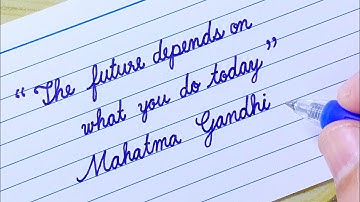 “The future depends on
what you do today”
Mahatma Gandhi